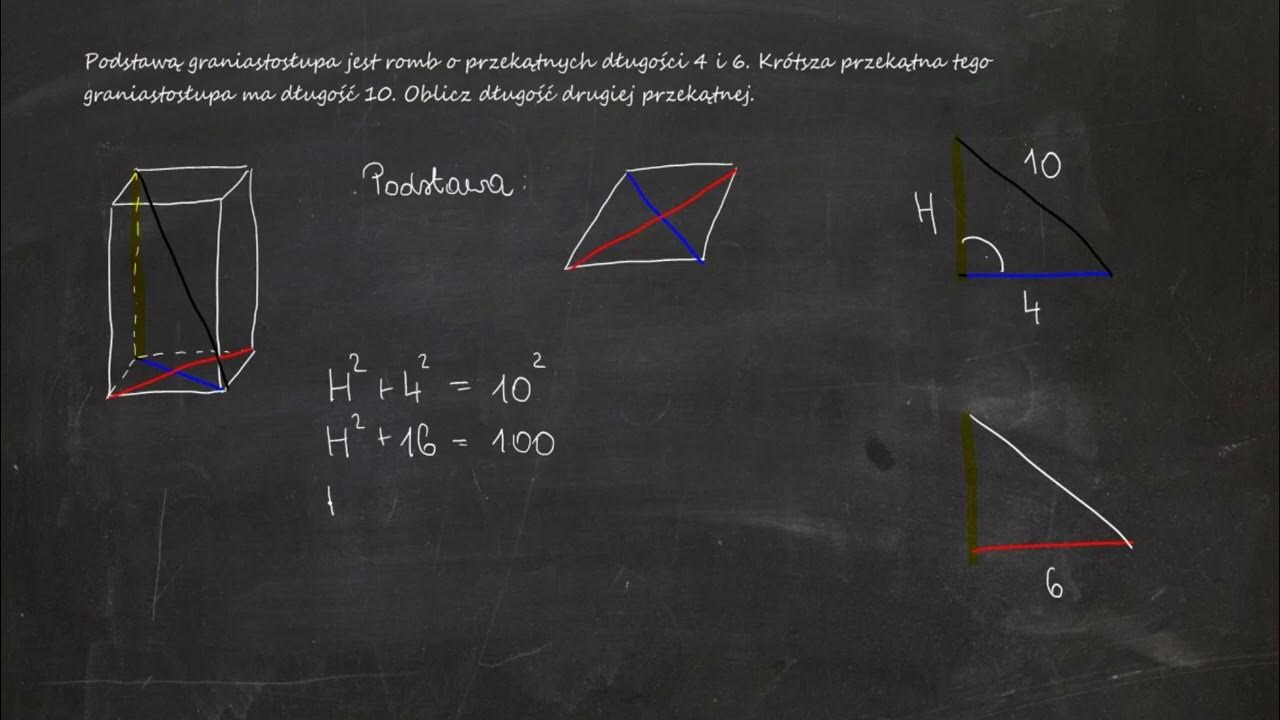 Podstawą graniastosłupa jest romb o przekątnych długości 4 i 6. Krótsza przekątna tego
graniastosłupa ma długość 10. Oblicz długość drugiej przekątnej.
Podstawa:
10
H
4
H² + 4² = 10²
H² + 16 = 100
6